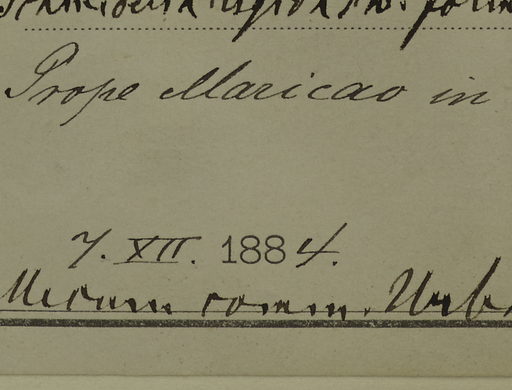 Prope Maricao in
7. XII. 1884.
Mecum comm. Urb